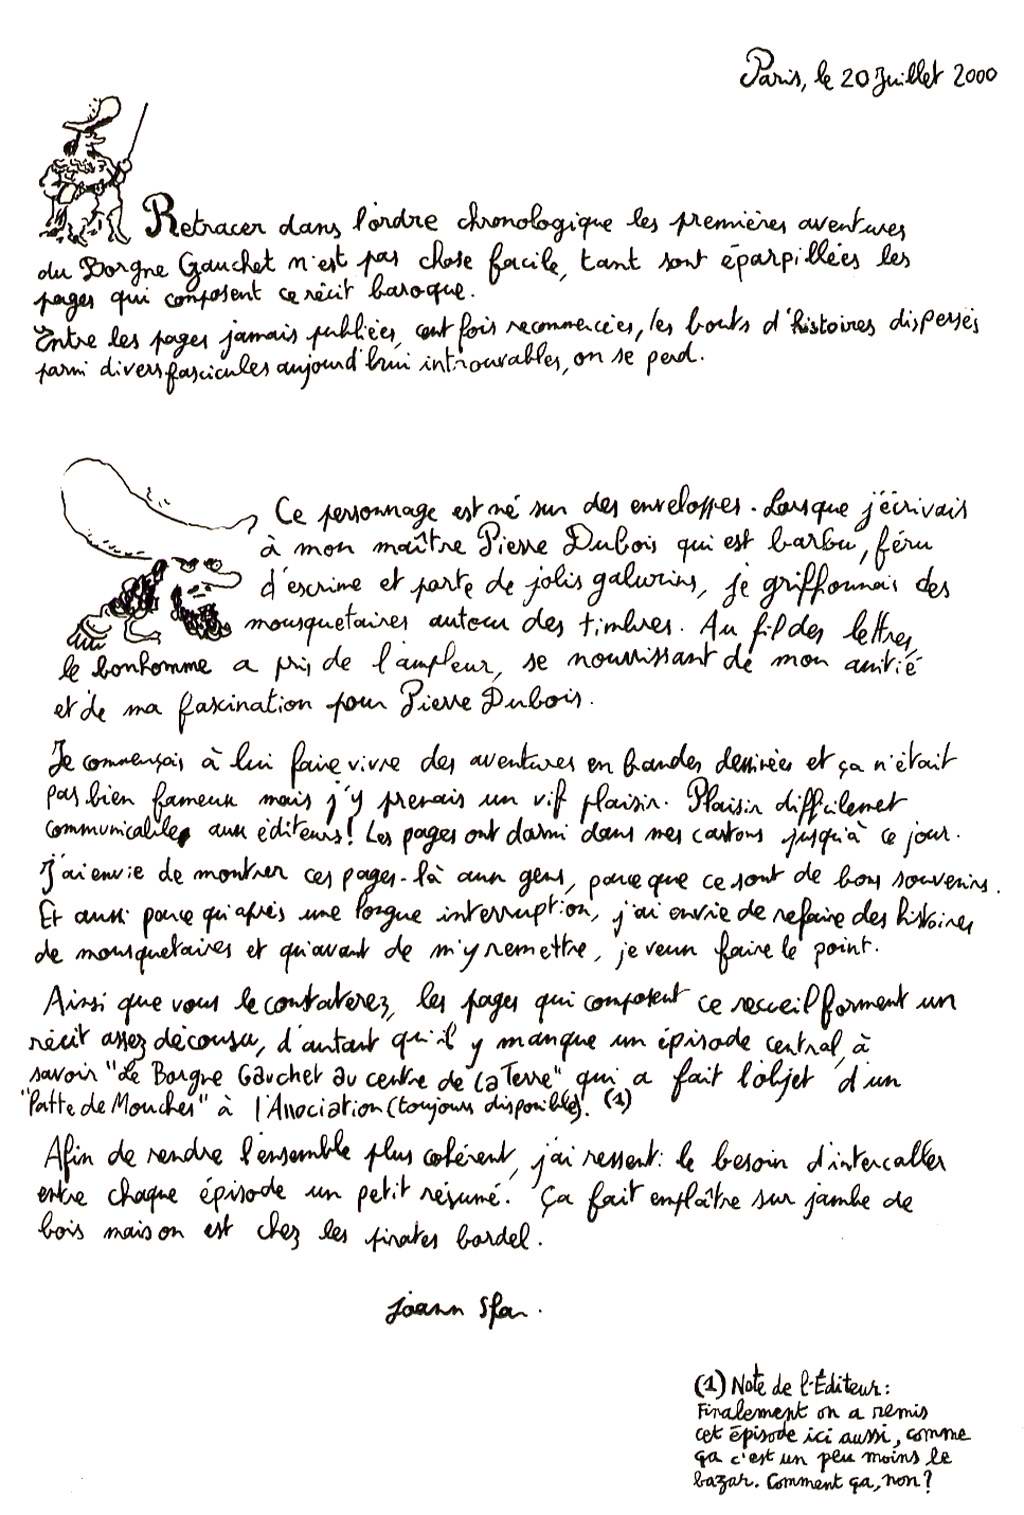 Paris, le 20 Juillet 2000
Retracer dans l'ordre chronologique les premières aventures
du Borgne Gauchet n'est pas chose facile, tant sont éparpillées les
pages qui composent ce récit baroque.
Entre les pages jamais publiées, cent fois recommencées, les bouts d'histoires dispersés
parmi divers fascicules aujourd'hui introuvables, on se perd.
Ce personnage est né sur des enveloppes. Lorsque j'écrivais
à mon maître Pierre Dubois qui est barbu, féru
d'escrime et porte de jolis galurins, je griffonnais des
mousquetaires autour des timbres. Au fil des lettres,
le bonhomme a pris de l'ampleur, se nourrissant de mon amitié
et de ma fascination pour Pierre Dubois.
Je commençais à lui faire vivre des aventures en bandes dessinées et ça n'était
pas bien fameux mais j'y prenais un vif plaisir. Plaisir difficilemet
communicable aux éditeurs! Les pages ont dormi dans mes cartons jusqu'à ce jour.
J'ai envie de montrer ces pages-là aux gens, parce que ce sont de bons souvenirs.
Et aussi parce qu'après une longue interruption, j'ai envie de refaire des histoires
de mousquetaires et qu'avant de m'y remettre, je veux faire le point.
Ainsi que vous le constaterez, les pages qui composent ce recueil forment un
récit assez décousu, d'autant qu'il y manque un épisode central, à
savoir "Le Borgne Gauchet au centre de la Terre" qui a fait l'objet d'un
"Patte de Mouches" à l'Association (toujours disponible). (1)
Afin de rendre l'ensemble plus cohérent, j'ai ressenti le besoin d'intercaller
entre chaque épisode un petit résumé. Ça fait emplâtre sur jambe de
bois mais on est chez les pirates bordel.
Joann Sfar.
(1) Note de l'Éditeur:
Finalement on a remis
cet épisode ici aussi, comme
ça c'est un peu moins le
bazar. Comment ça, non?